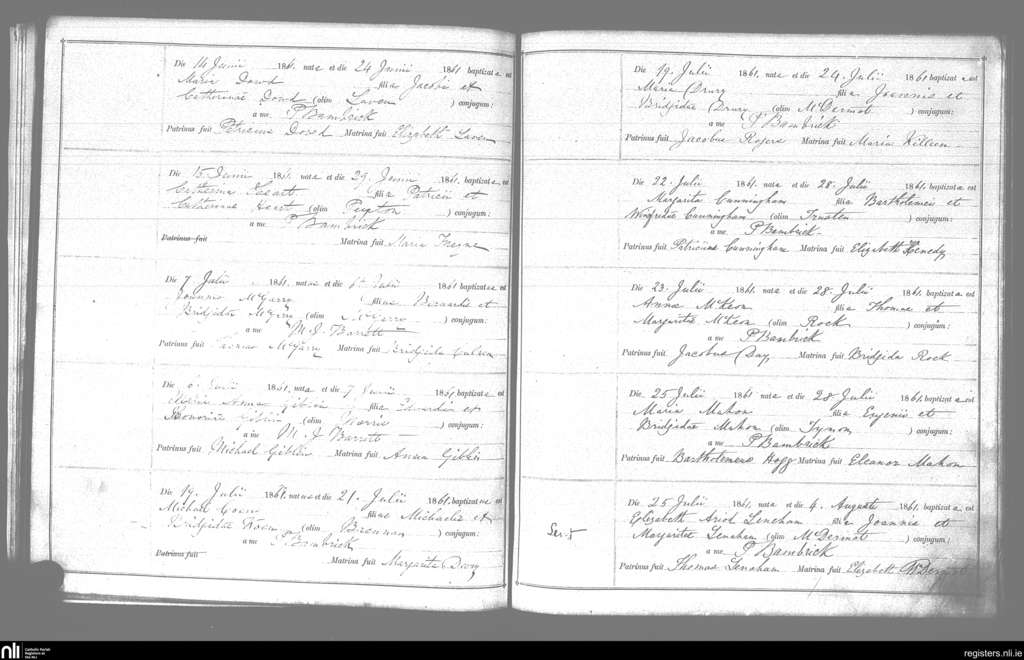 Die 14 Junii 1861. nata et die 24 Junii 1861 baptizata est
Maria Dowd filia Jacobi et
Catherinae Dowd (olim Laven ) conjugum:
a me P Bambrick
Patrinus fuit Patricius Dowd Matrina fuit Elizabeth Laven
Die 15 Junii 1861. nata et die 29 Junii 1861. baptizata est
Catherina filia Patricii et
Catherinae (olim Peyton ) conjugum:
a me P Bambrick
Patrinus fuit Matrina fuit Maria Freyne
Die 7 Julii 1861. natus et die Julii 1861 baptizatus est
Joannes McGarry filius Bernardi et
Bridgidae (olim ) conjugum:
a me M. J. Barrett
Patrinus fuit Thomas McGarry Matrina fuit Bridgida
Die 6 1861. nata et die 7 1861 baptizata est
Maria Anna Giblin filia et
Honoriae Giblin (olim Morris ) conjugum:
a me M J Barrett
Patrinus fuit Michael Giblin Matrina fuit Anna Giblin
Die 19. Julii 1861. natus et die 21. Julii 1861. baptizatus est
Michael Coen filius Michaelis et
Bridgidae Coen (olim Brennan ) conjugum:
a me P Bambrick
Patrinus fuit
Matrina fuit Margarita
Die 19. Julii 1861. nata et die 24. Julii 1861 baptizata est
Maria Drury filia Joannis et
Bridgidae Drury (olim McDermot ) conjugum:
a me P Bambrick
Patrinus fuit Jacobus Rogers Matrina fuit Maria Killeen
Die 22. Julii 1861. nata et die 28. Julii 1861. baptizata est
Margarita Cunningham filia Bartholemei et
Cunningham (olim ) conjugum:
a me P Bambrick
Patrinus fuit Patricius Cunningham Matrina fuit Elizabeth Kenedy
Die 23. Julii 1861. nata et die 28. Julii 1861. baptizata est
Anna McKeon filia Thomae et
Margaritae McKeon (olim Rock ) conjugum:
a me P Bambrick
Patrinus fuit Jacobus Day Matrina fuit Bridgida Rock
Die 25 Julii 1861 nata et die 28 Julii 1861. baptizata est
Maria Mahon filia Eugenii et
Bridgidae Mahon (olim Tynon ) conjugum:
a me P Bambrick
Patrinus fuit Bartholemeus Matrina fuit Eleanor Mahon
Die 25 Julii 1861. nata et die 4. Augusti 1861. baptizata est
Elizabeth Lenehan filia Joannis et
Margaritae Lenehan (olim McDermot ) conjugum:
a me P Bambrick
Patrinus fuit Thomas Lenehan Matrina fuit Elizabeth McDermot
nli
Catholic Parish
Registers at
the NLI
registers.nli.ie